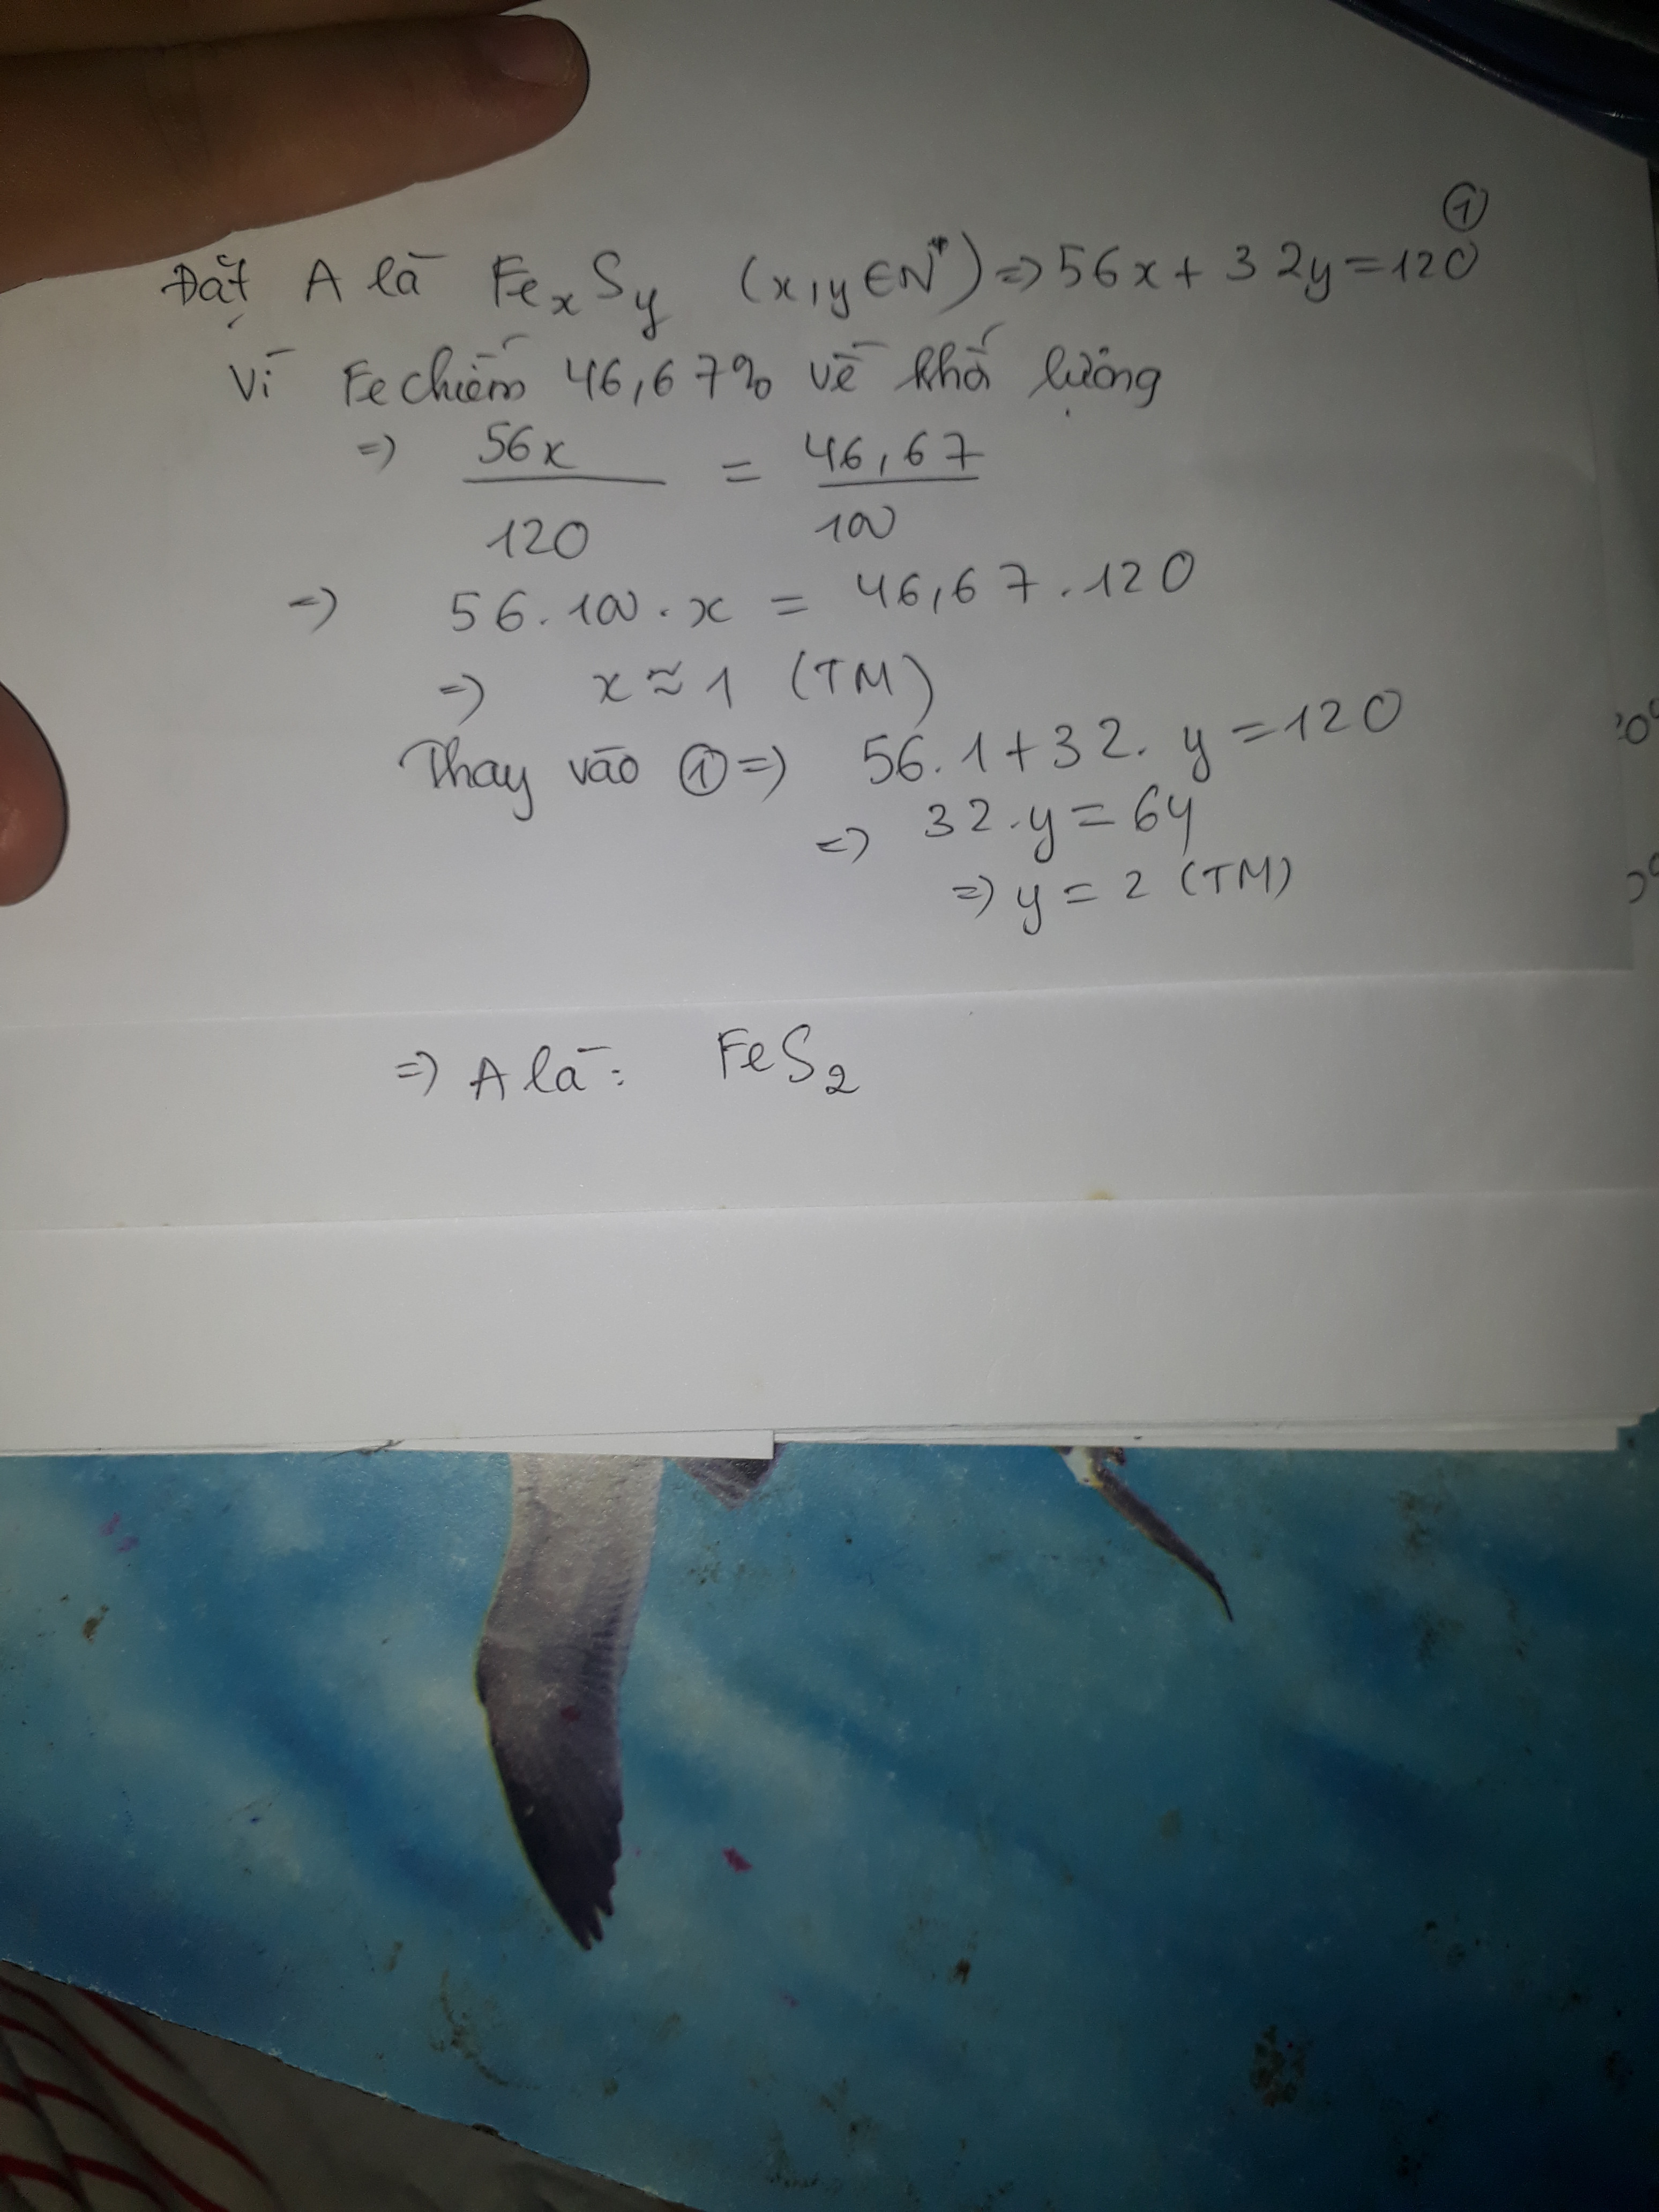 ①
Đặt A là FexSy (x,y ∈ N*) => 56x + 32y = 120
Vì Fe chiếm 46,67% về khối lượng
=> 56x / 120 = 46,67 / 100
=> 56.100.x = 46,67.120
=> x ≈ 1 (TM)
Thay vào ① => 56.1 + 32.y = 120
=> 32.y = 64
=> y = 2 (TM)
=> A là: FeS2